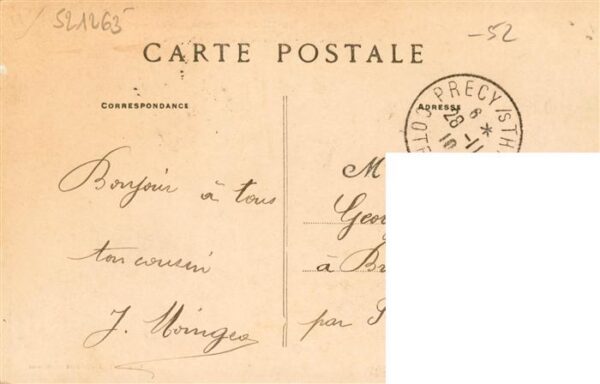 521263
-52
CARTE POSTALE
CORRESPONDANCE
ADRESSE
PRECY/STH
COTE
6 *
28 -11
Bonjour à tous
ton cousin
J.
M
Geor
à Br
par